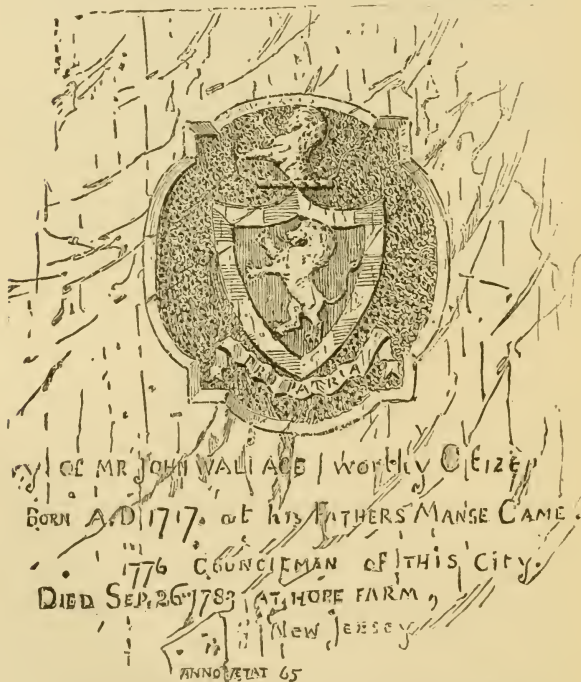 PRO PATRIA
OF MR JOHN WALLACE worthy
BORN A.D 1717. at his FATHERS MANSE CAME
1776 COUNCILMAN OF THIS City.
DIED SEP. 26 AT HOPE FARM,
New Jersey
ANNO ÆTAT 65